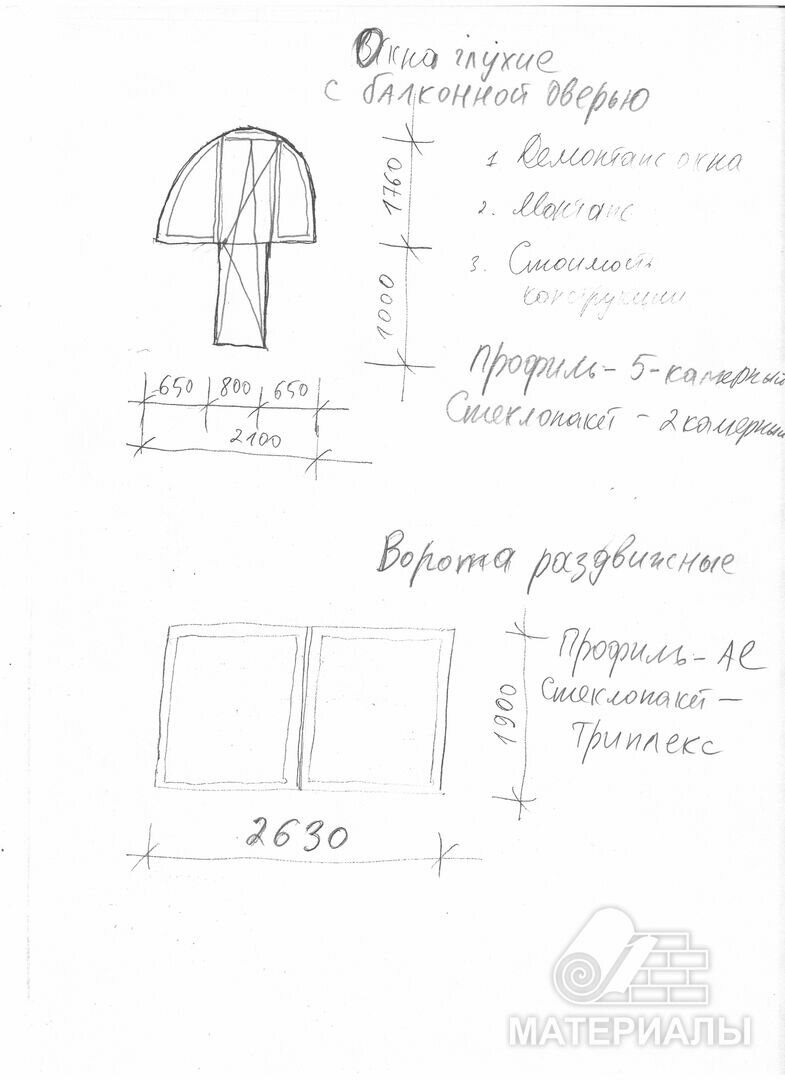 Окна глухие
с балконной дверью
1 Демонтаж окна
2. Монтаж
3. Стоимость
конструкции
1760
1000
Профиль - 5-камерный
Стеклопакет - 2 камерный
650 800 650
2100
Ворота раздвижные
Профиль - АС
Стеклопакет -
Триплекс
1900
2630
МАТЕРИАЛЫ